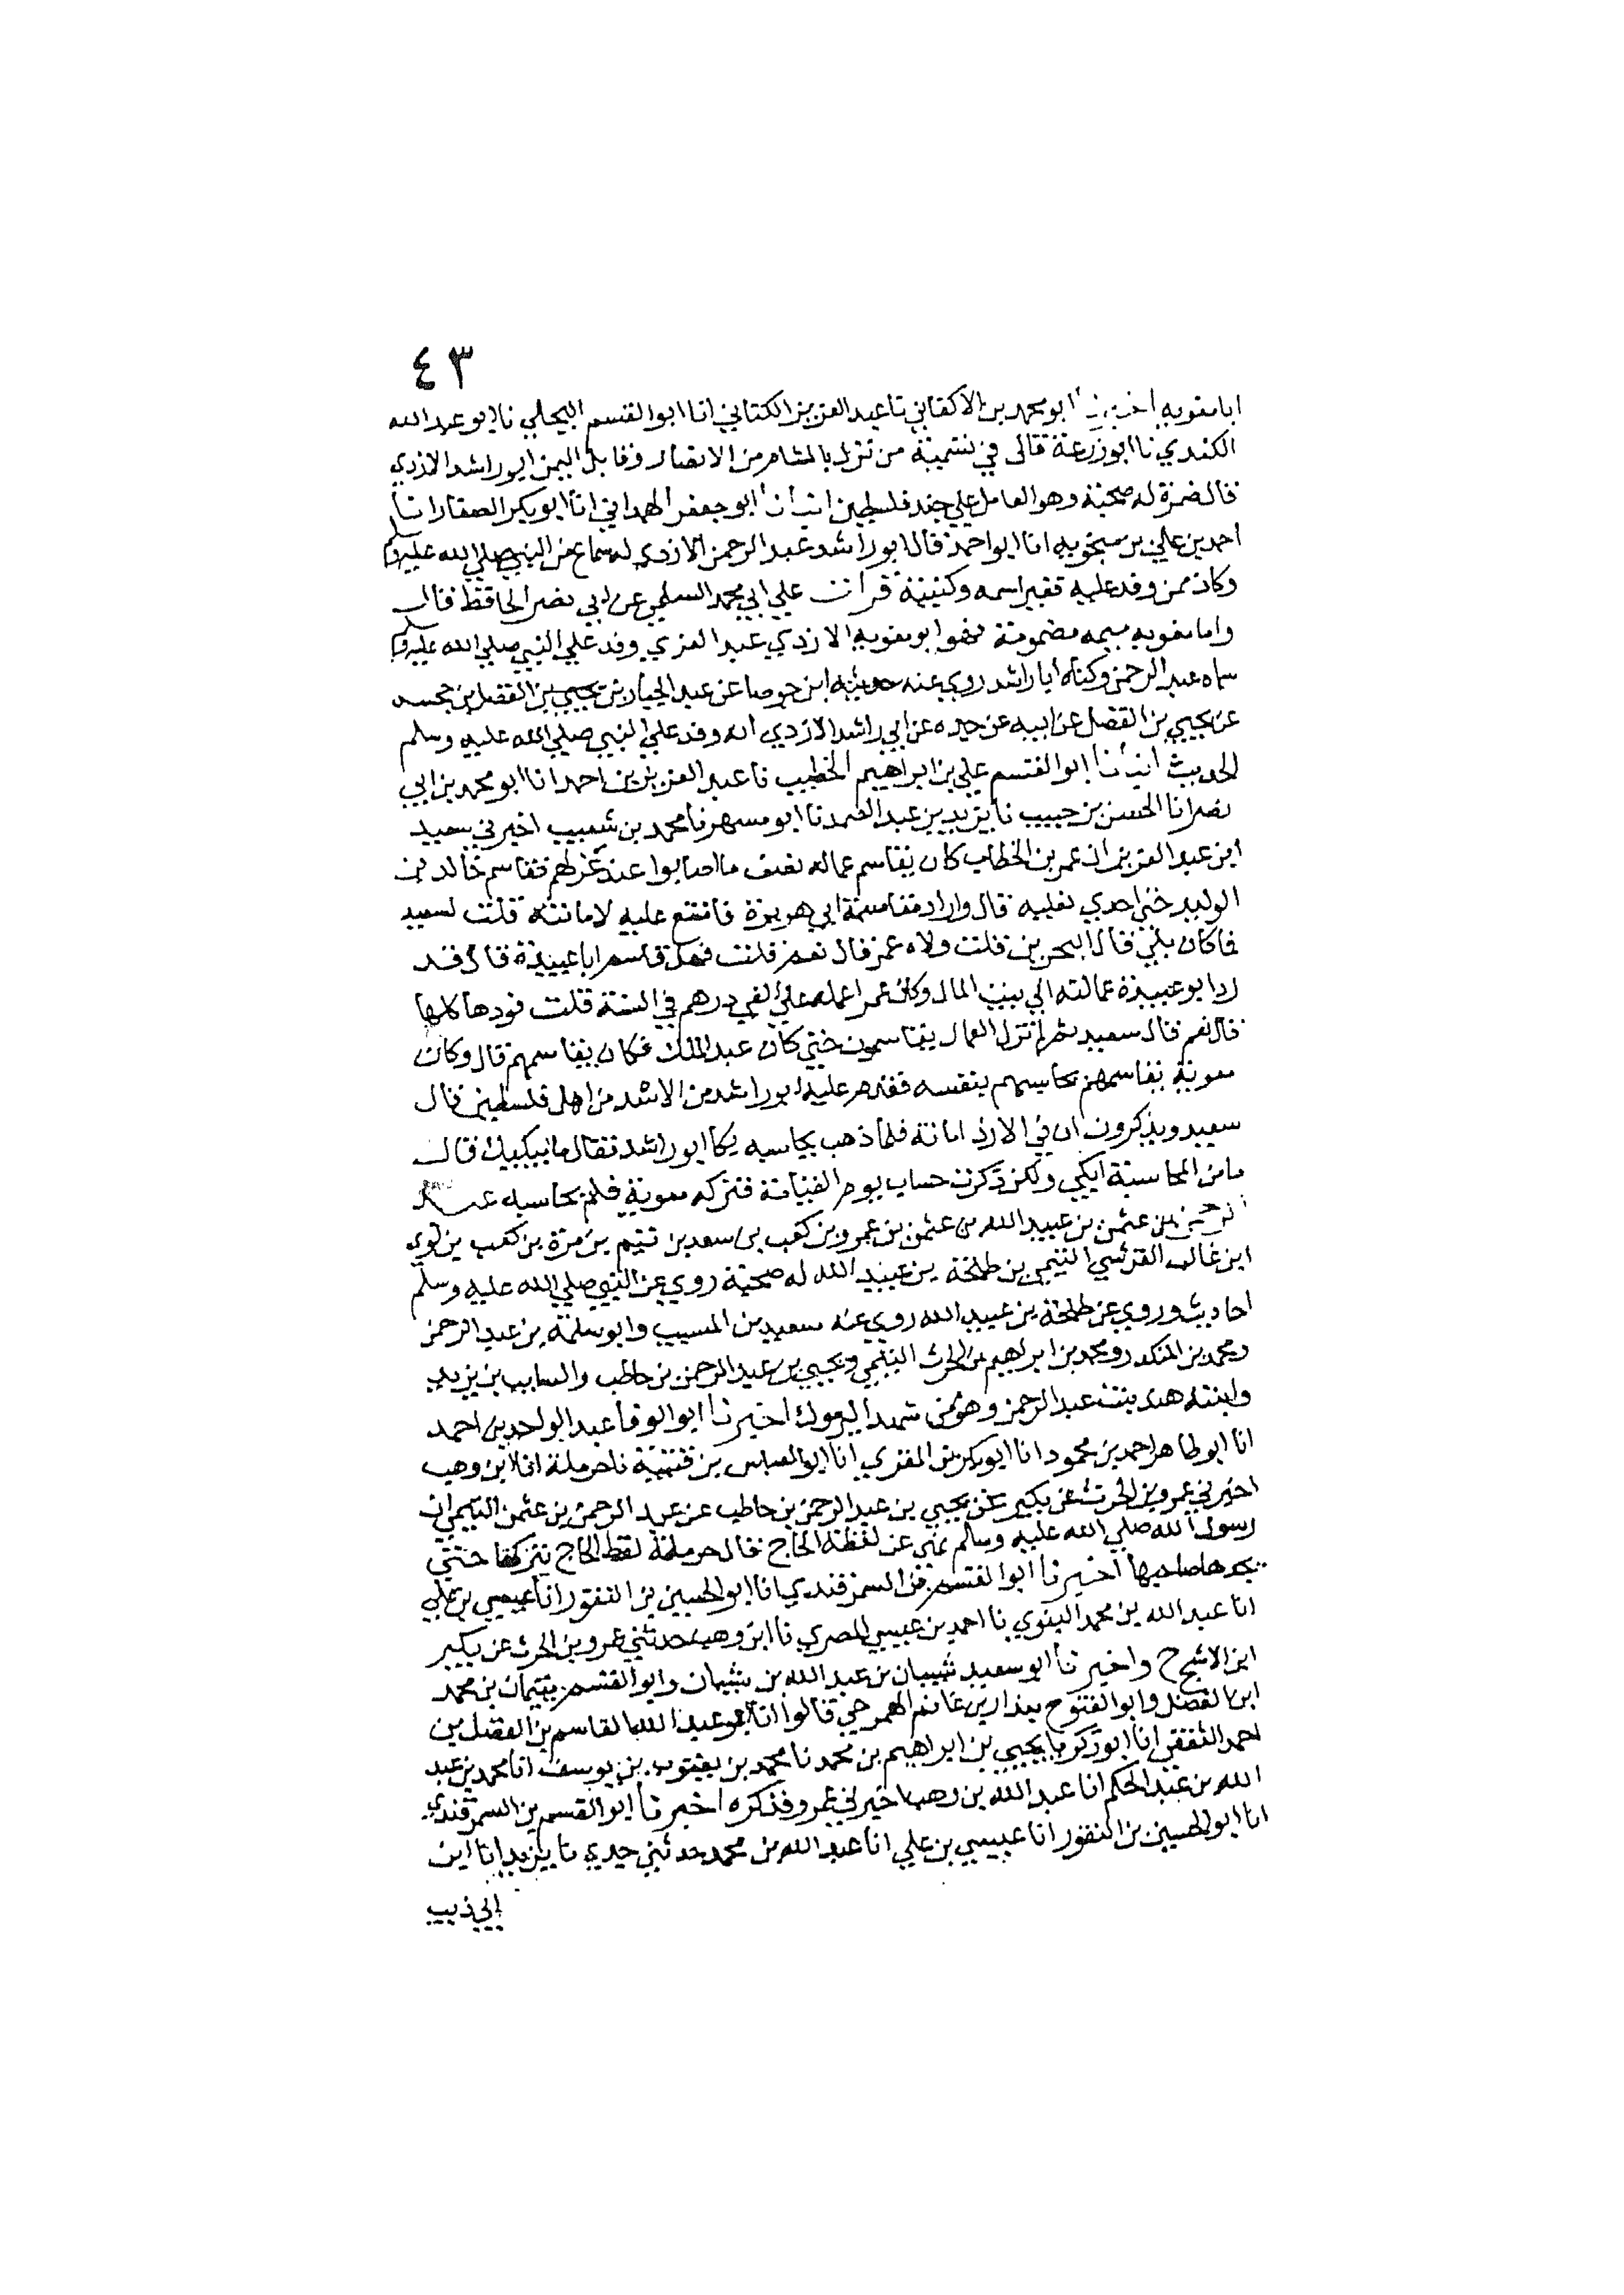 ٤٣
ابامغويه اخبرنا ابو محمد بن الاكفاني نا عبد العزيز الكتاني انا ابو القسم البجلي نا ابو عبد الله
الكندي نا ابو زرعة قال في تسمية من نزل بالشام من الانصار وقبايل اليمن ابو راشد الازدي
قال ضمرة له صحبة وهو العامل علي جند فلسطين انبانا ابو جعفر الهمداني انا ابو بكر الصفار انا
احمد بن علي بن منجويه انا ابو احمد قال ابو راشد عبد الرحمن الازدي له سماع من النبي صلي الله عليه وسلم
وكان ممن وفد عليه فغير اسمه وكنيته قرات علي ابي محمد السلمي عن ابي نصر الحافظ قال
واما مغويه بميمه مضمومة فهو ابو مغويه الازدي عبد العزي وفد علي النبي صلي الله عليه وسلم
سماه عبد الرحمن وكناه ابا راشد روي عنه حديثه ابن جوصا عن عبد الجبار بن يحيي بن الفضل بن
عن يحيي بن الفضل عن ابيه عن جده عن ابي راشد الازدي انه وفد علي النبي صلي الله عليه وسلم
الحديث انبانا ابو القسم علي بن ابراهيم الخطيب نا عبد العزيز بن احمد انا ابو محمد بن ابي
نصر انا الحسن بن حبيب نا يزيد بن عبد الصمد نا ابو مسهر نا محمد بن شعيب اخبرني سعيد
ابن عبد العزيز ان عمر بن الخطاب كان يقاسم عماله نصف ما اصابوا عند عزلهم فقاسم خالد بن
الوليد حتي احدي نعليه قال واراد مقاسمة ابي هريرة فامتنع عليه لامانته قلت لسعيد
فما كان يلي قال البحرين قلت ولاه عمر قال نعم قلت فهل قاسم ابا عبيدة قال قد
رد ابو عبيدة عمالته الي بيت المال وكان عمر اعمله علي الفي درهم في السنة قلت فردها كلها
قال نعم قال سعيد ثم لم تزل العمال يقاسمون حتي كان عبد الملك فكان يقاسمهم قال وكان
معوية يقاسمهم يحاسبهم بنفسه فقدم عليه ابو راشد من الاشد من اهل فلسطين قال
سعيد ويذكرون ان في الازد امانة فلما ذهب يحاسبه بكا ابو راشد فقال ما يبكيك قال
ما من المحاسبة ابكي ولكن ذكرت حساب يوم القيامة فتركه معوية فلم يحاسبه عبد
الرحمن بن عثمن بن عبيد الله بن عثمن بن عمرو بن كعب بن سعد بن تيم بن مرة بن كعب بن لوي
ابن غالب القرشي التيمي بن طلحة بن عبيد الله له صحبة روي عن النبي صلي الله عليه وسلم
احاديث وروي عن طلحة بن عبيد الله روي عنه سعيد بن المسيب وابو سلمة بن عبد الرحمن
ومحمد بن المنكدر ومحمد بن ابراهيم بن الحرث التيمي ويحيي بن عبد الرحمن بن حاطب والسايب بن يزيد
وابنته هند بنت عبد الرحمن وهو ممن شهد اليرموك اخبرنا ابو الوفا عبد الواحد بن احمد
انا ابو طاهر احمد بن محمود انا ابو بكر بن المقري انا ابو العباس بن قتيبة نا حرملة انا ابن وهب
اخبرني عمرو بن الحرث عن بكير عن يحيي بن عبد الرحمن بن حاطب عن عبد الرحمن بن عثمن التيمي ان
رسول الله صلي الله عليه وسلم نهي عن لقطة الحاج قال حرملة لقط الحاج يتركها حتي
يجدها صاحبها اخبرنا ابو القسم بن السمرقندي انا ابو الحسين بن النقور انا عيسي بن علي
انا عبد الله بن محمد البغوي نا احمد بن عيسي المصري نا ابن وهب حدثني عمرو بن الحرث عن بكير
ابن الاشج ح واخبرنا ابو سعيد شيبان بن عبد الله بن شيبان وابو القسم بن محمد
ابن الفضل وابو الفتوح بندار بن غانم قالوا انا ابو عبد الله القاسم بن الفضل بن
احمد الثقفي انا ابو زكريا يحيي بن ابراهيم بن محمد نا محمد بن يعقوب بن يوسف انا محمد بن عبد
الله بن عبد الحكم انا عبد الله بن وهب اخبرني عمرو فذكره اخبرنا ابو القسم بن السمرقندي
انا ابو الحسين بن النقور انا عيسي بن علي انا عبد الله بن محمد حدثني جدي نا يزيد انا ابن
ابي ذيب